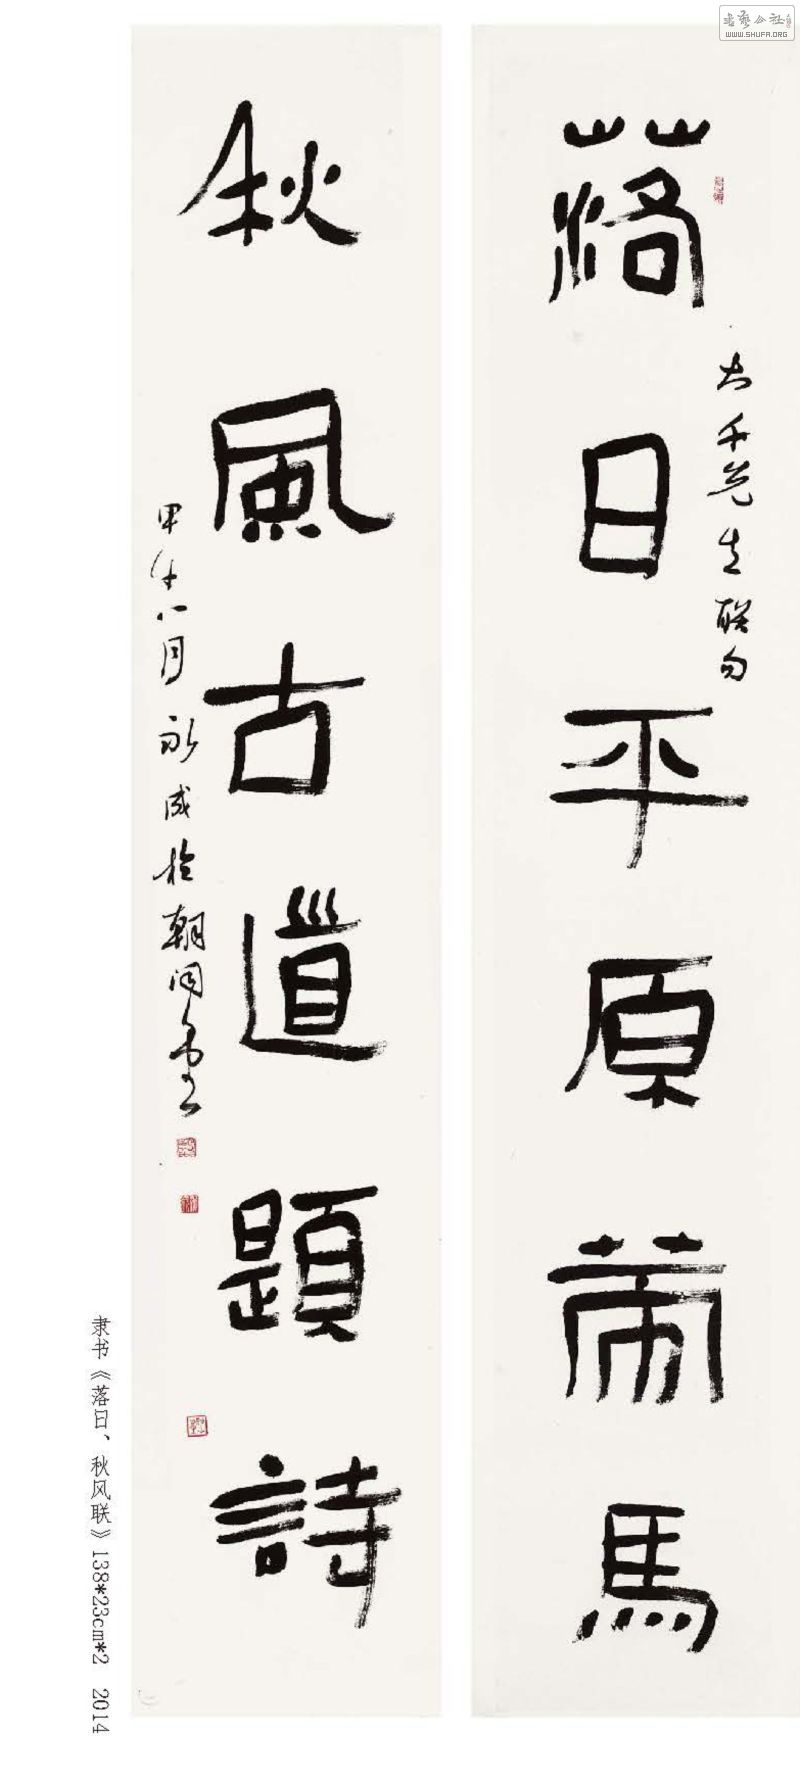 書藝公社
WWW.SHUFA.ORG
落日平原馬
大千先生联句
秋風古道題詩
甲午八月永成於朝闻堂
隶书《落日、秋风联》138*23cm*2 2014